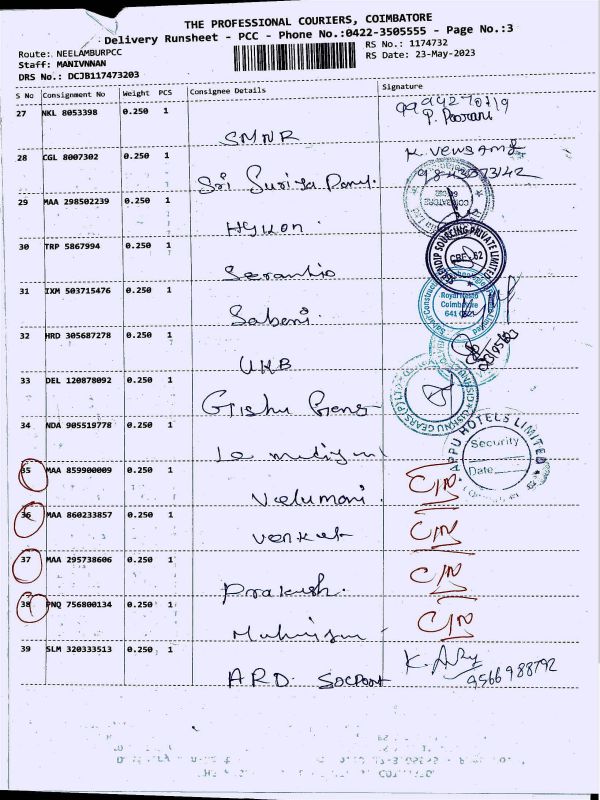 THE PROFESSIONAL COURIERS, COIMBATORE
Delivery Runsheet - PCC - Phone No.:0422-3505555 - Page No.:3
Route: NEELAMBURPCC
RS No.: 1174732
Staff: MANIVNNAN
RS Date: 23-May-2023
DRS No.: DCJB117473203
S No Consignment No Weight PCS Consignee Details Signature
27 NKL 8053398 0.250 1
SMNR
P. Poorani
28 CGL 8007302 0.250 1
Sri Suriya
29 MAA 298502239 0.250 1
Hykon
COIMBATORE
30 TRP 5867994 0.250 1
SOURCING PRIVATE LIMITED
CBE - 62
31 IXM 503715476 0.250 1
Sabari
Royal Hesto
Coimbatore
32 HRD 305687278 0.250 1
UKB
33 DEL 120878092 0.250 1
Gishu
GEARS (P) LTD
34 NDA 905519778 0.250 1
APPU HOTELS LIMITED
Security
Date
35 MAA 859900009 0.250 1
Velumani
C/N
36 MAA 860233857 0.250 1
Venkat
C/N
37 MAA 295738606 0.250 1
Prakash.
C/N
38 PNQ 756800134 0.250 1
C/N
39 SLM 320333513 0.250 1
ARD
9566988792